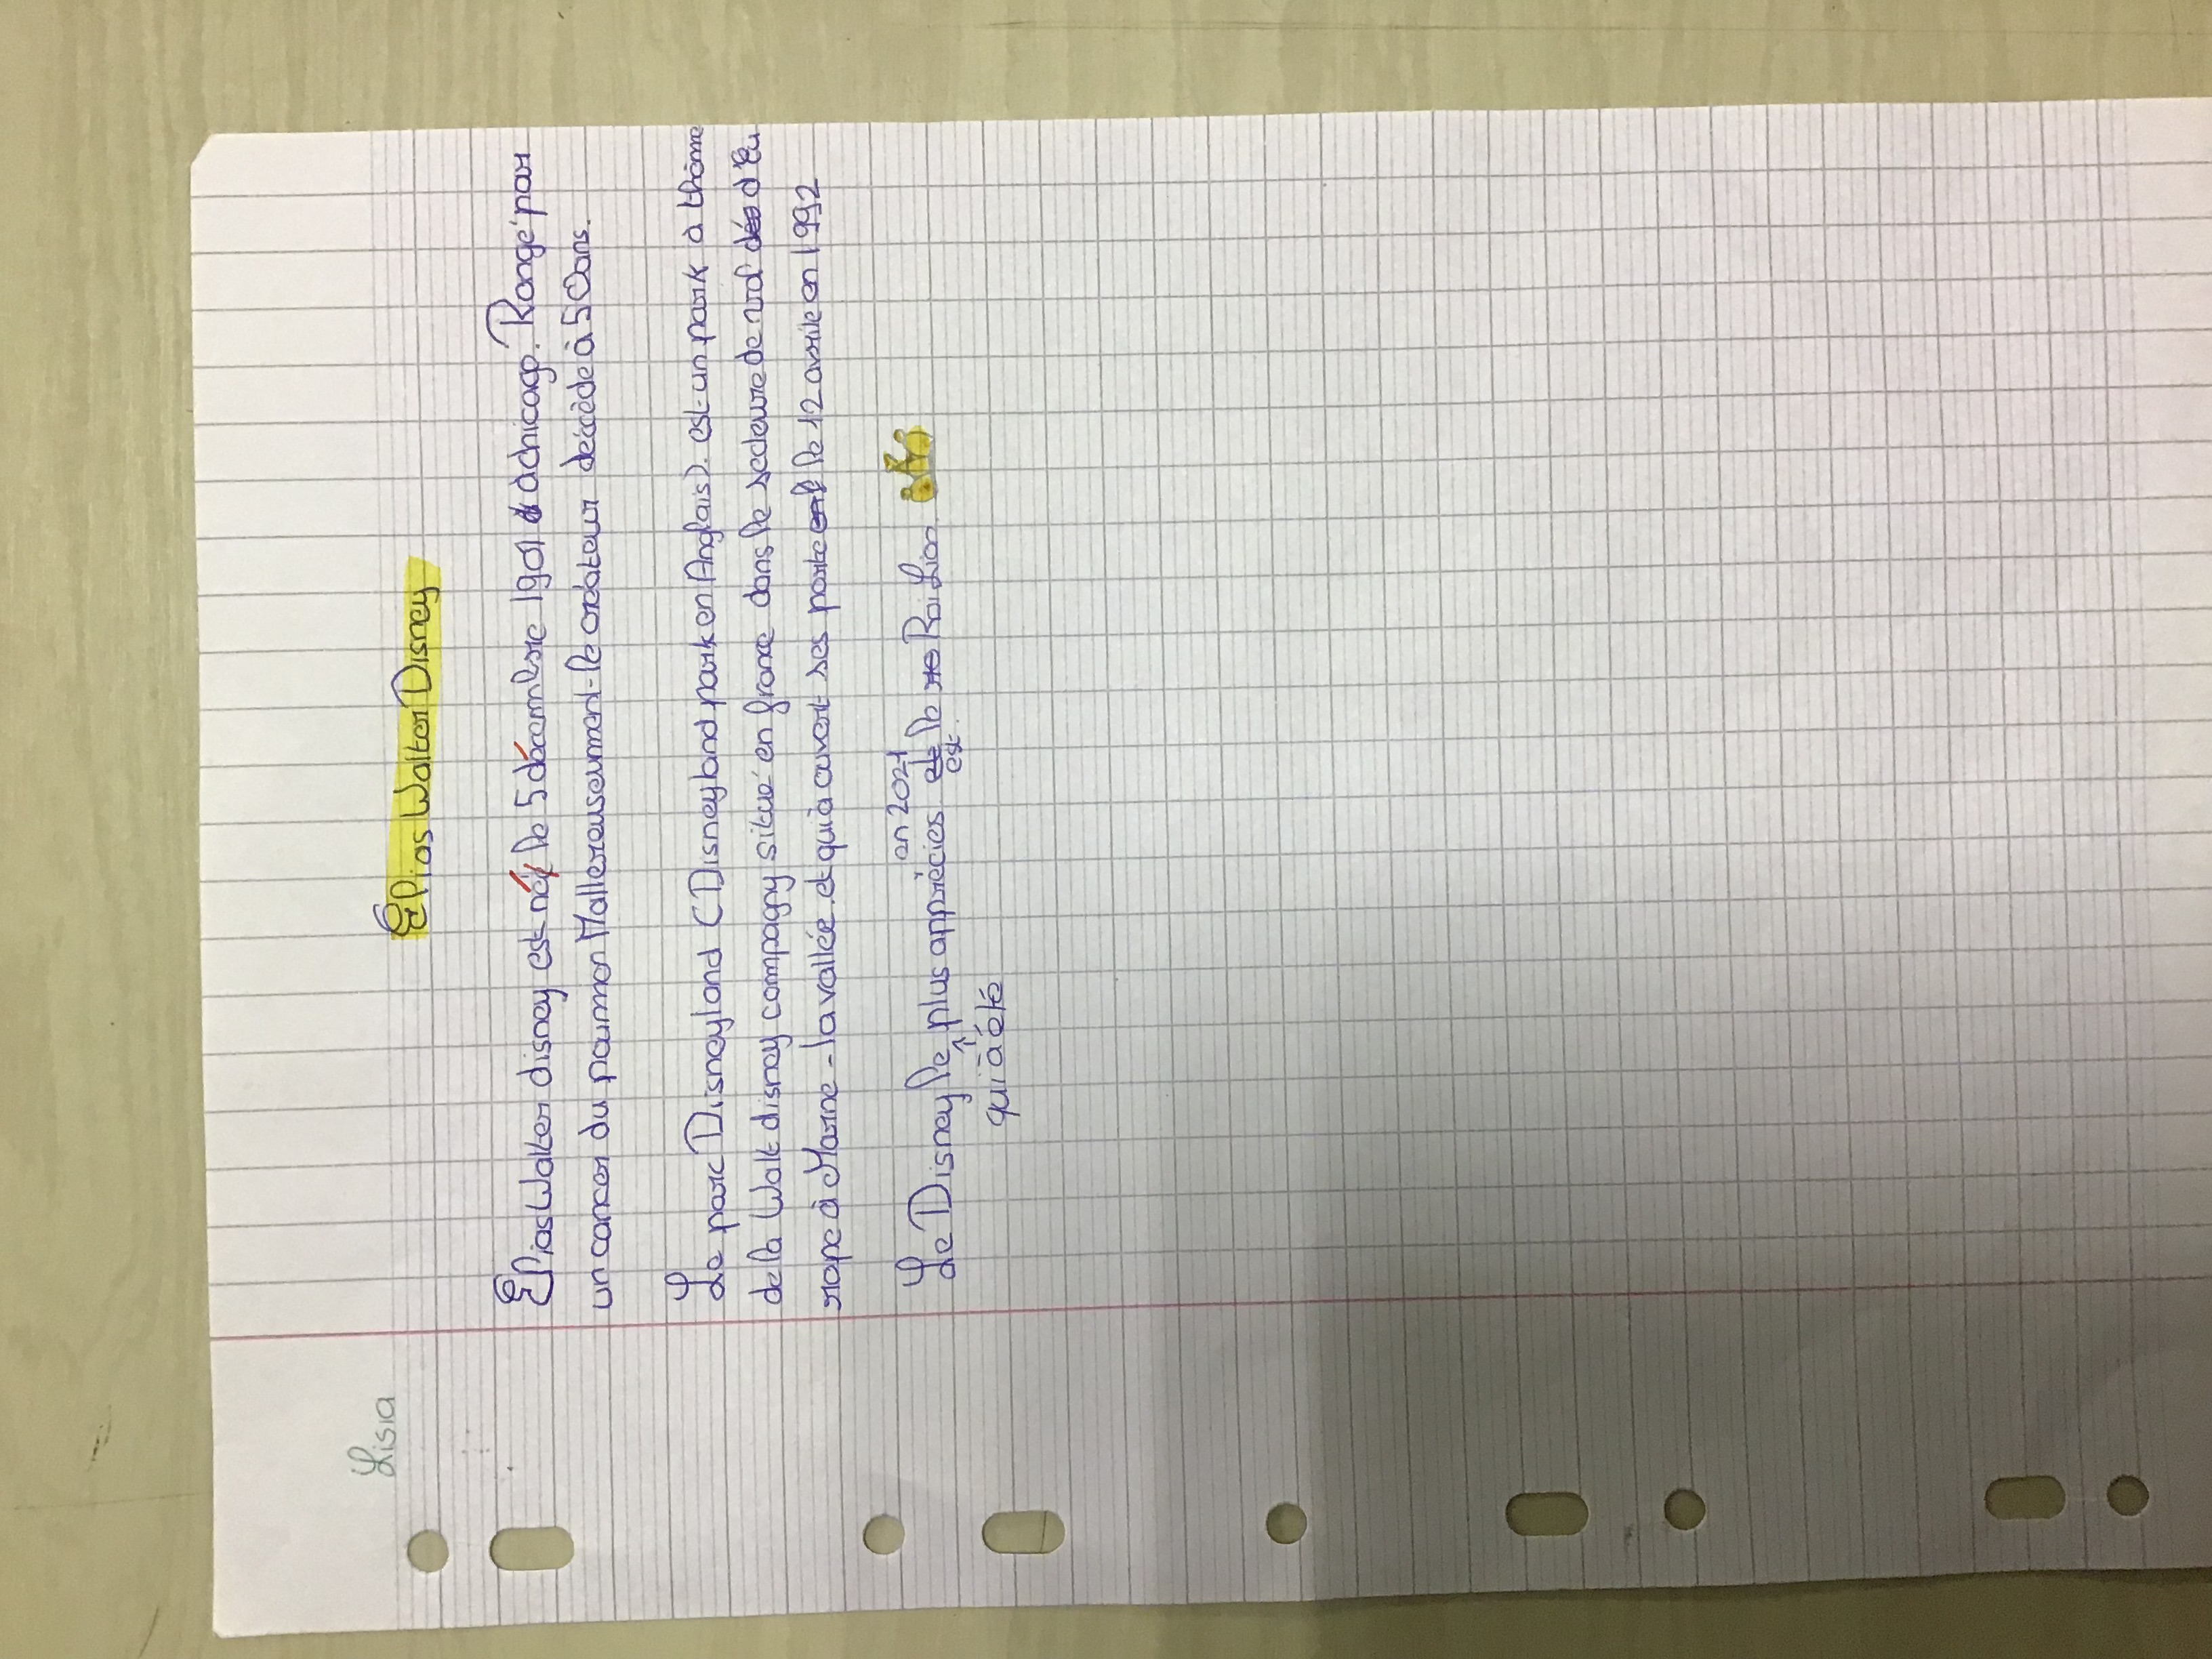 Lisia
Elias Walter Disney
Elias Walter disney est né le 5 décembre 1901 à chicago. Rongé par
un cancer du poumon Mallereuseument le créateur décède à 50 ans.
Le parc Disneyland (Disneyland park en Anglais). est un park à thème
de la Walt disney compagny situé en france dans le secteure de val d'Eu
rope à Marne-la vallée. et qui a ouvert ses porte le 12 avrile en 1992
en 2021
Le Disney le plus apprécies est le Roi Lion
qui à été